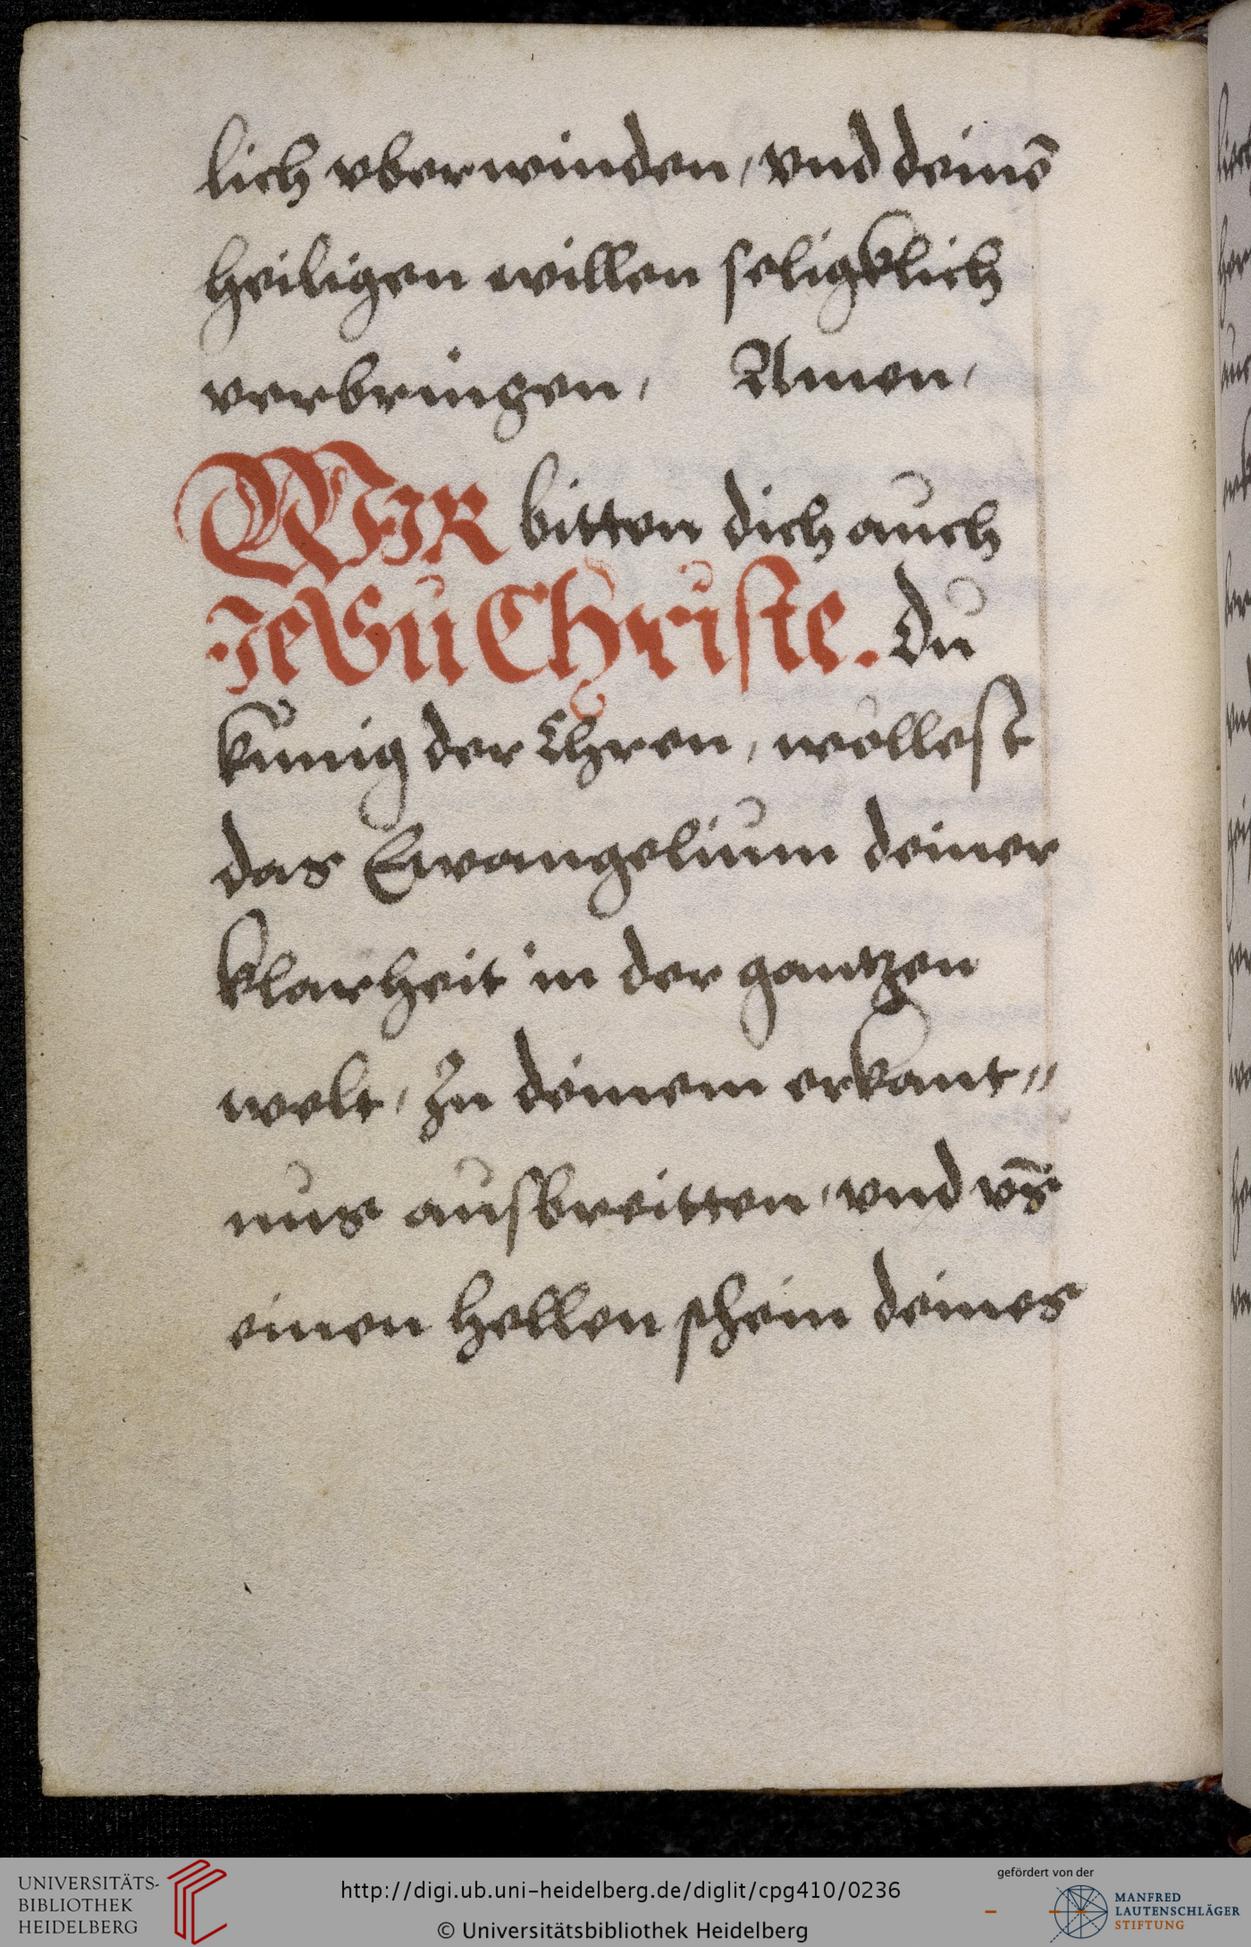 lich vberwinden, vnd deinē
heiligen willen seligklich
verbringen, Amen,
WIR bitten dich auch
JeSu Christe. du
künig der Ehren, wöllest
das Ewangelium deiner
klarheit in der gantzen
welt, Zu deinem erkant„
nus ausbreitten, vnd vn̄s
einen hellen schein deines
UNIVERSITÄTS-
BIBLIOTHEK
HEIDELBERG
http://digi.ub.uni-heidelberg.de/diglit/cpg410/0236
© Universitätsbibliothek Heidelberg
gefördert von der
MANFRED
LAUTENSCHLÄGER
STIFTUNG